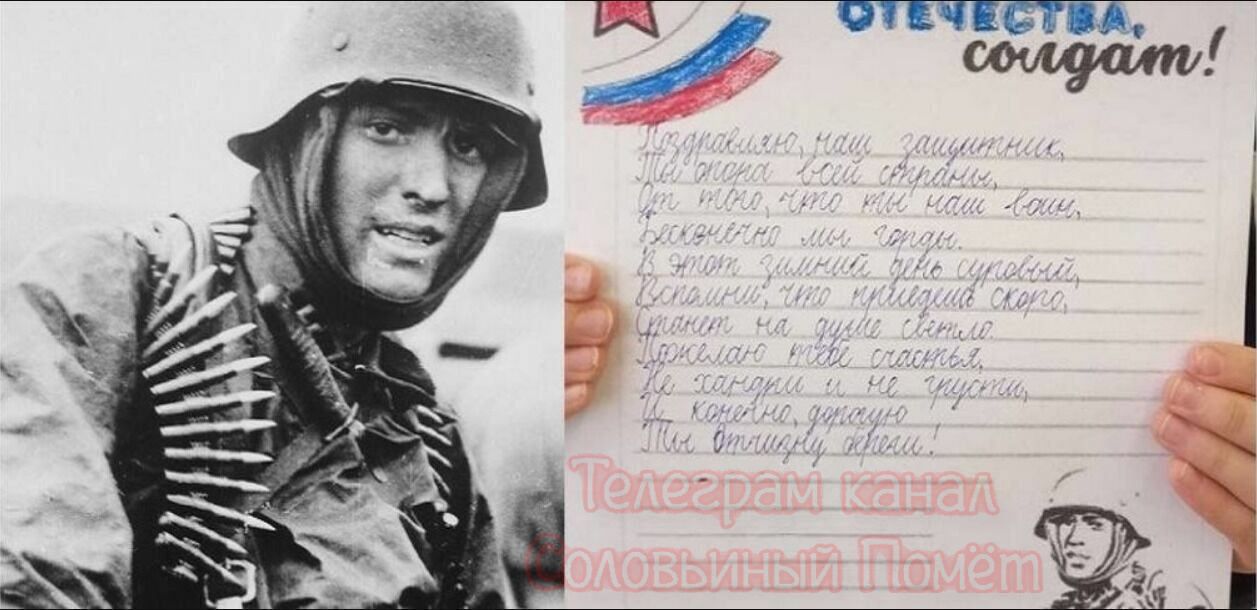 ОТЕЧЕСТВА,
солдат!
Поздравляю, наш защитник,
Ты опора всей страны,
От того, что ты наш воин,
Бесконечно мы горды.
В этот зимний день суровый,
Вспомни, что приедешь скоро,
Станет на душе светло.
Пожелаю тебе счастья,
Не хандри и не грусти,
И конечно, дорогую
Ты отчизну береги!
Телеграм канал
Соловьиный Помёт